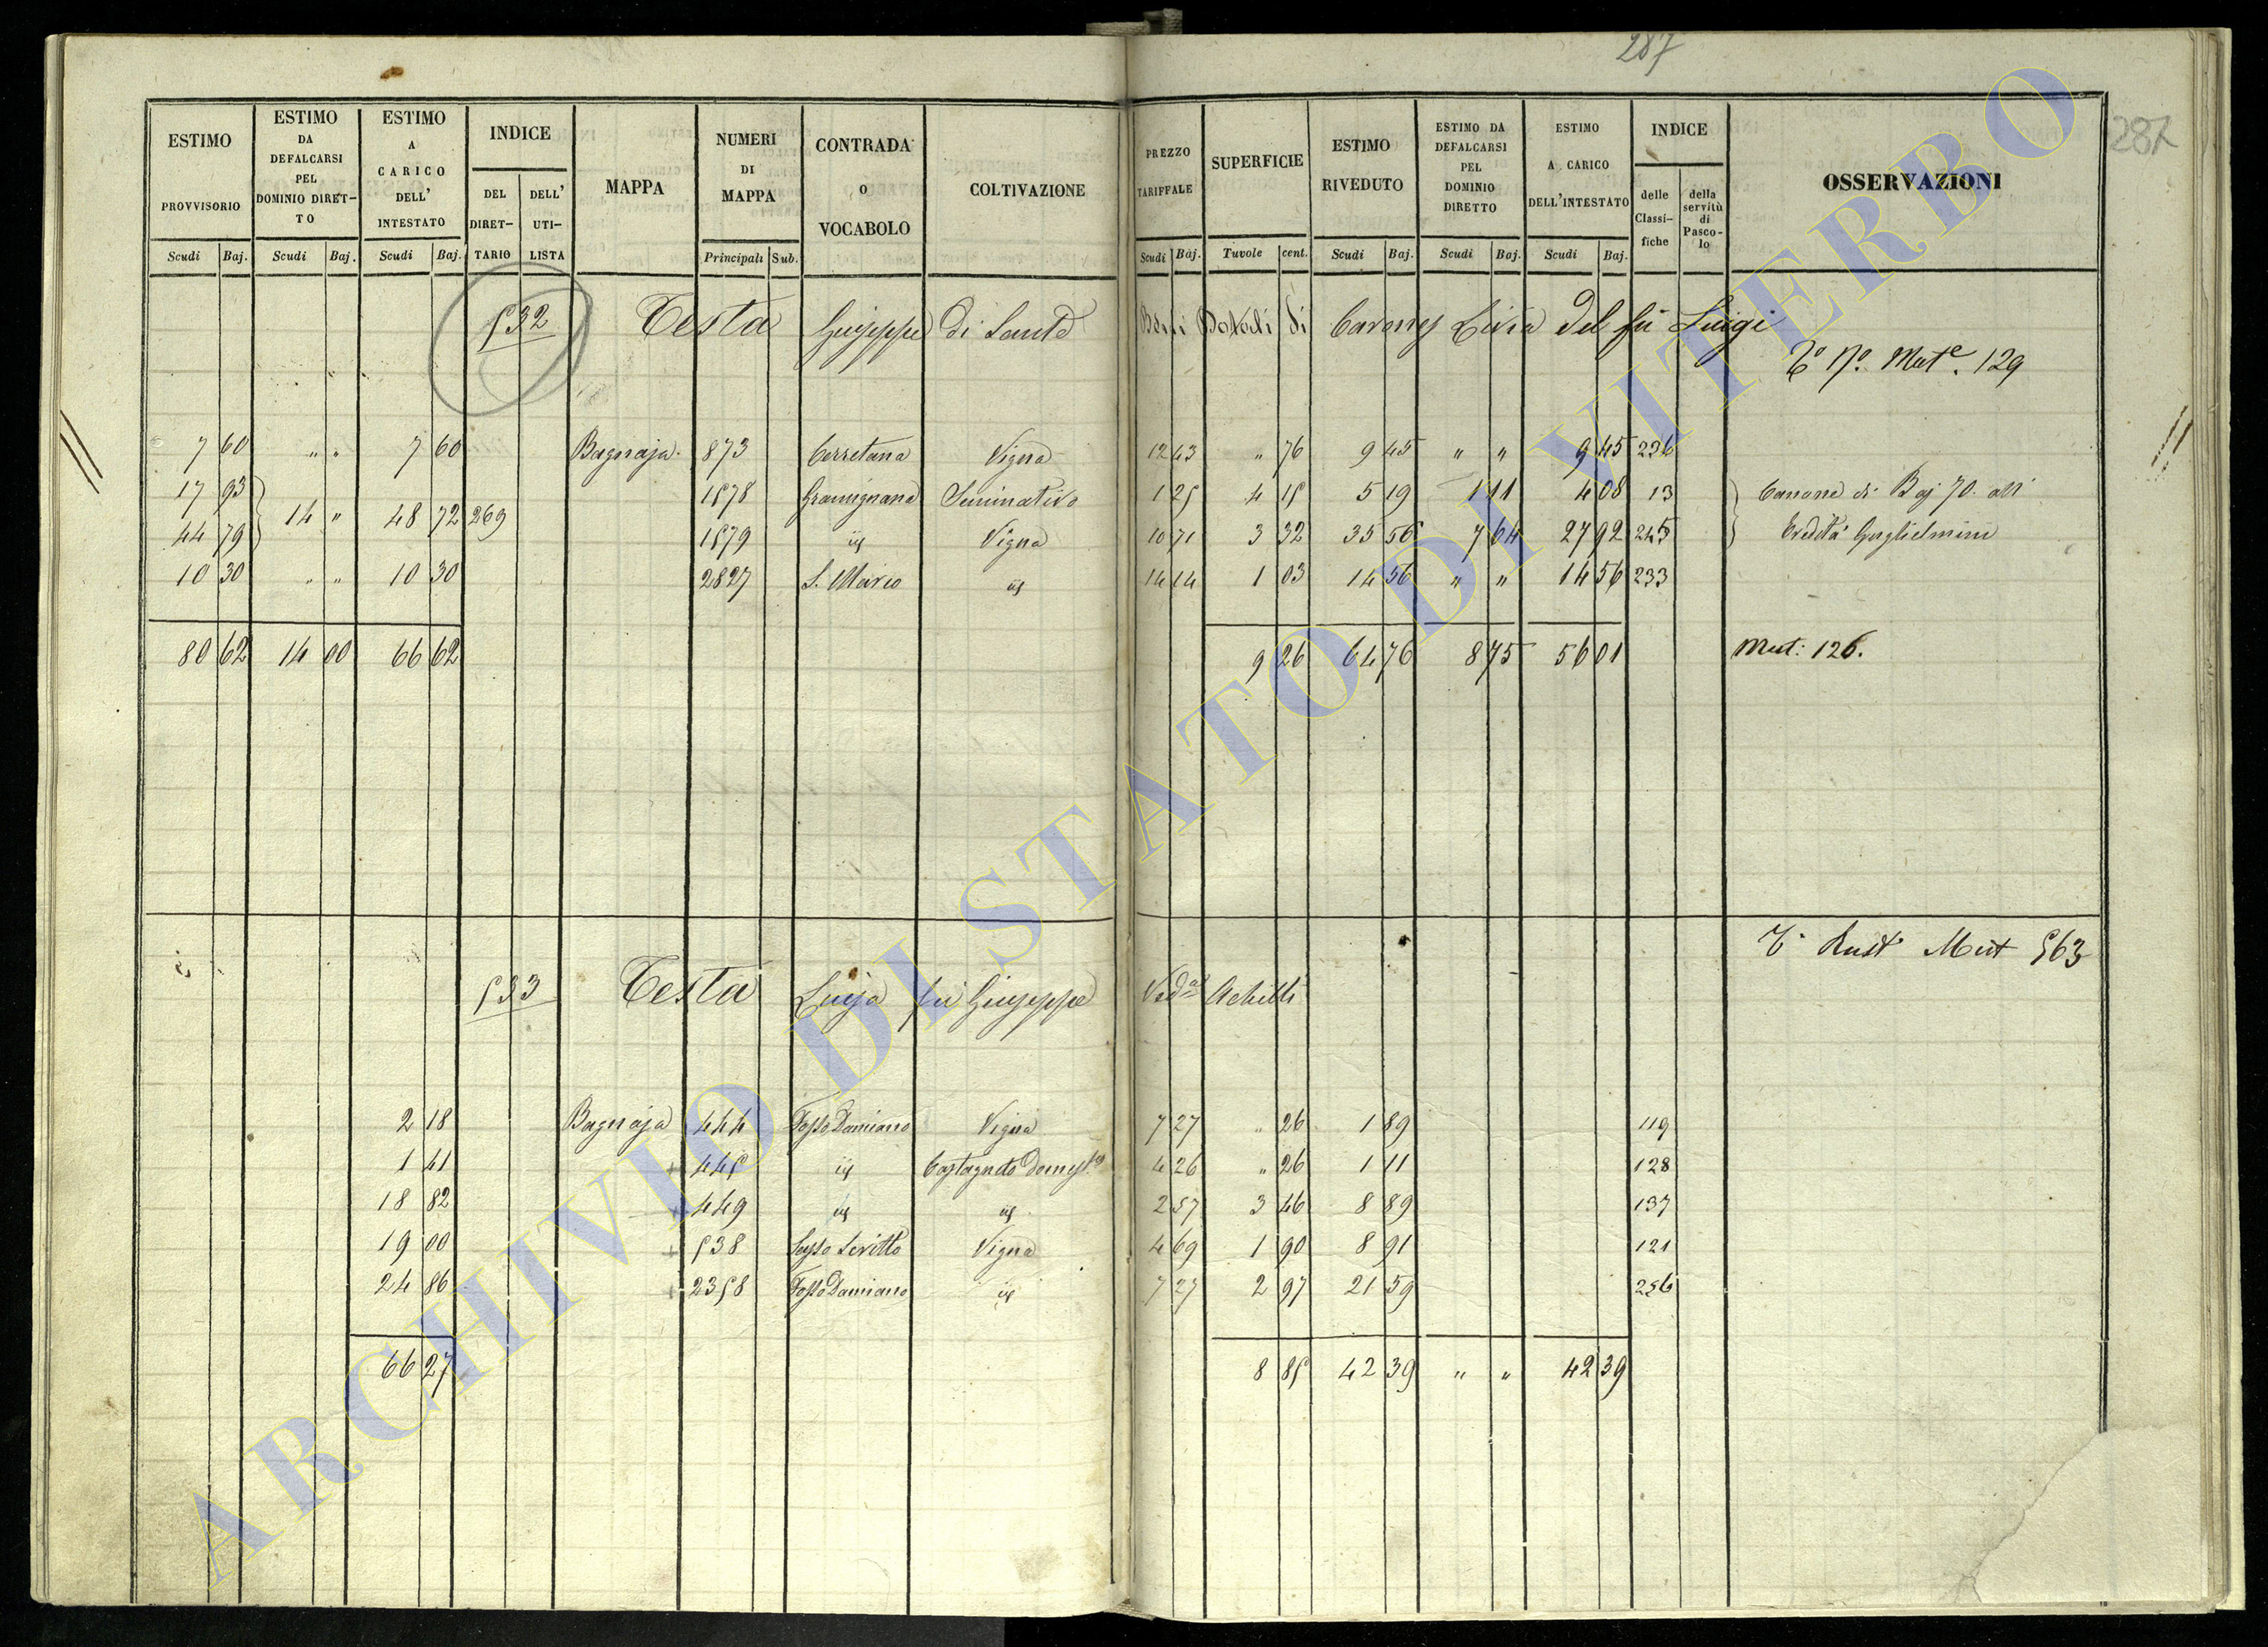 287
287
ESTIMO PROVVISORIO Scudi Baj.
ESTIMO DA DEFALCARSI PEL DOMINIO DIRET-TO Scudi Baj.
ESTIMO A CARICO DELL' INTESTATO Scudi Baj.
INDICE DEL DIRET-TARIO DELL' UTI-LISTA
MAPPA
NUMERI DI MAPPA Principali Sub.
CONTRADA o VOCABOLO
COLTIVAZIONE
PREZZO TARIFFALE Scudi Baj.
SUPERFICIE Tuvole cent.
ESTIMO RIVEDUTO Scudi Baj.
ESTIMO DA DEFALCARSI PEL DOMINIO DIRETTO Scudi Baj.
ESTIMO A CARICO DELL'INTESTATO Scudi Baj.
INDICE delle Classi-fiche della servitù di Pasco-lo
OSSERVAZIONI
532 Testa Giuseppe di Sante Beni Dotali di Livia del fù Luigi
Mut.e 129
7 60 " " 7 60 Bagnaja 873 Cerretana Vigna 12 43 " 76 9 45 " " 9 45 226
17 93 1578 Gramignana Seminativo 1 25 4 15 5 19 1 11 4 08 13 Canone di Baj 70. all'
14 " 48 72 269
44 79 1579 id Vigna 10 71 3 32 35 56 7 64 27 92 245 Eredità Guglielmini
10 30 " " 10 30 2827 S. Marco id 14 14 1 03 14 56 " " 14 56 233
80 62 14 00 66 62 9 26 64 76 8 75 56 01 Mut: 126.
Rust. Mut 563
533 Testa Luija fù Giuseppe Ved.a Achilli
2 18 Bagnaja 444 Fosso Damiano Vigna 7 27 " 26 1 89 119
1 41 + 445 id Castagneto Domest.o 4 26 " 26 1 11 128
18 82 + 449 id id 2 57 3 46 8 89 137
19 00 + 538 Sasso Scritto Vigna 4 69 1 90 8 91 121
24 86 + 2358 Fosso Damiano id 7 27 2 97 21 59 256
66 27 8 85 42 39 " " 42 39
ARCHIVIO DI STATO DI VITERBO